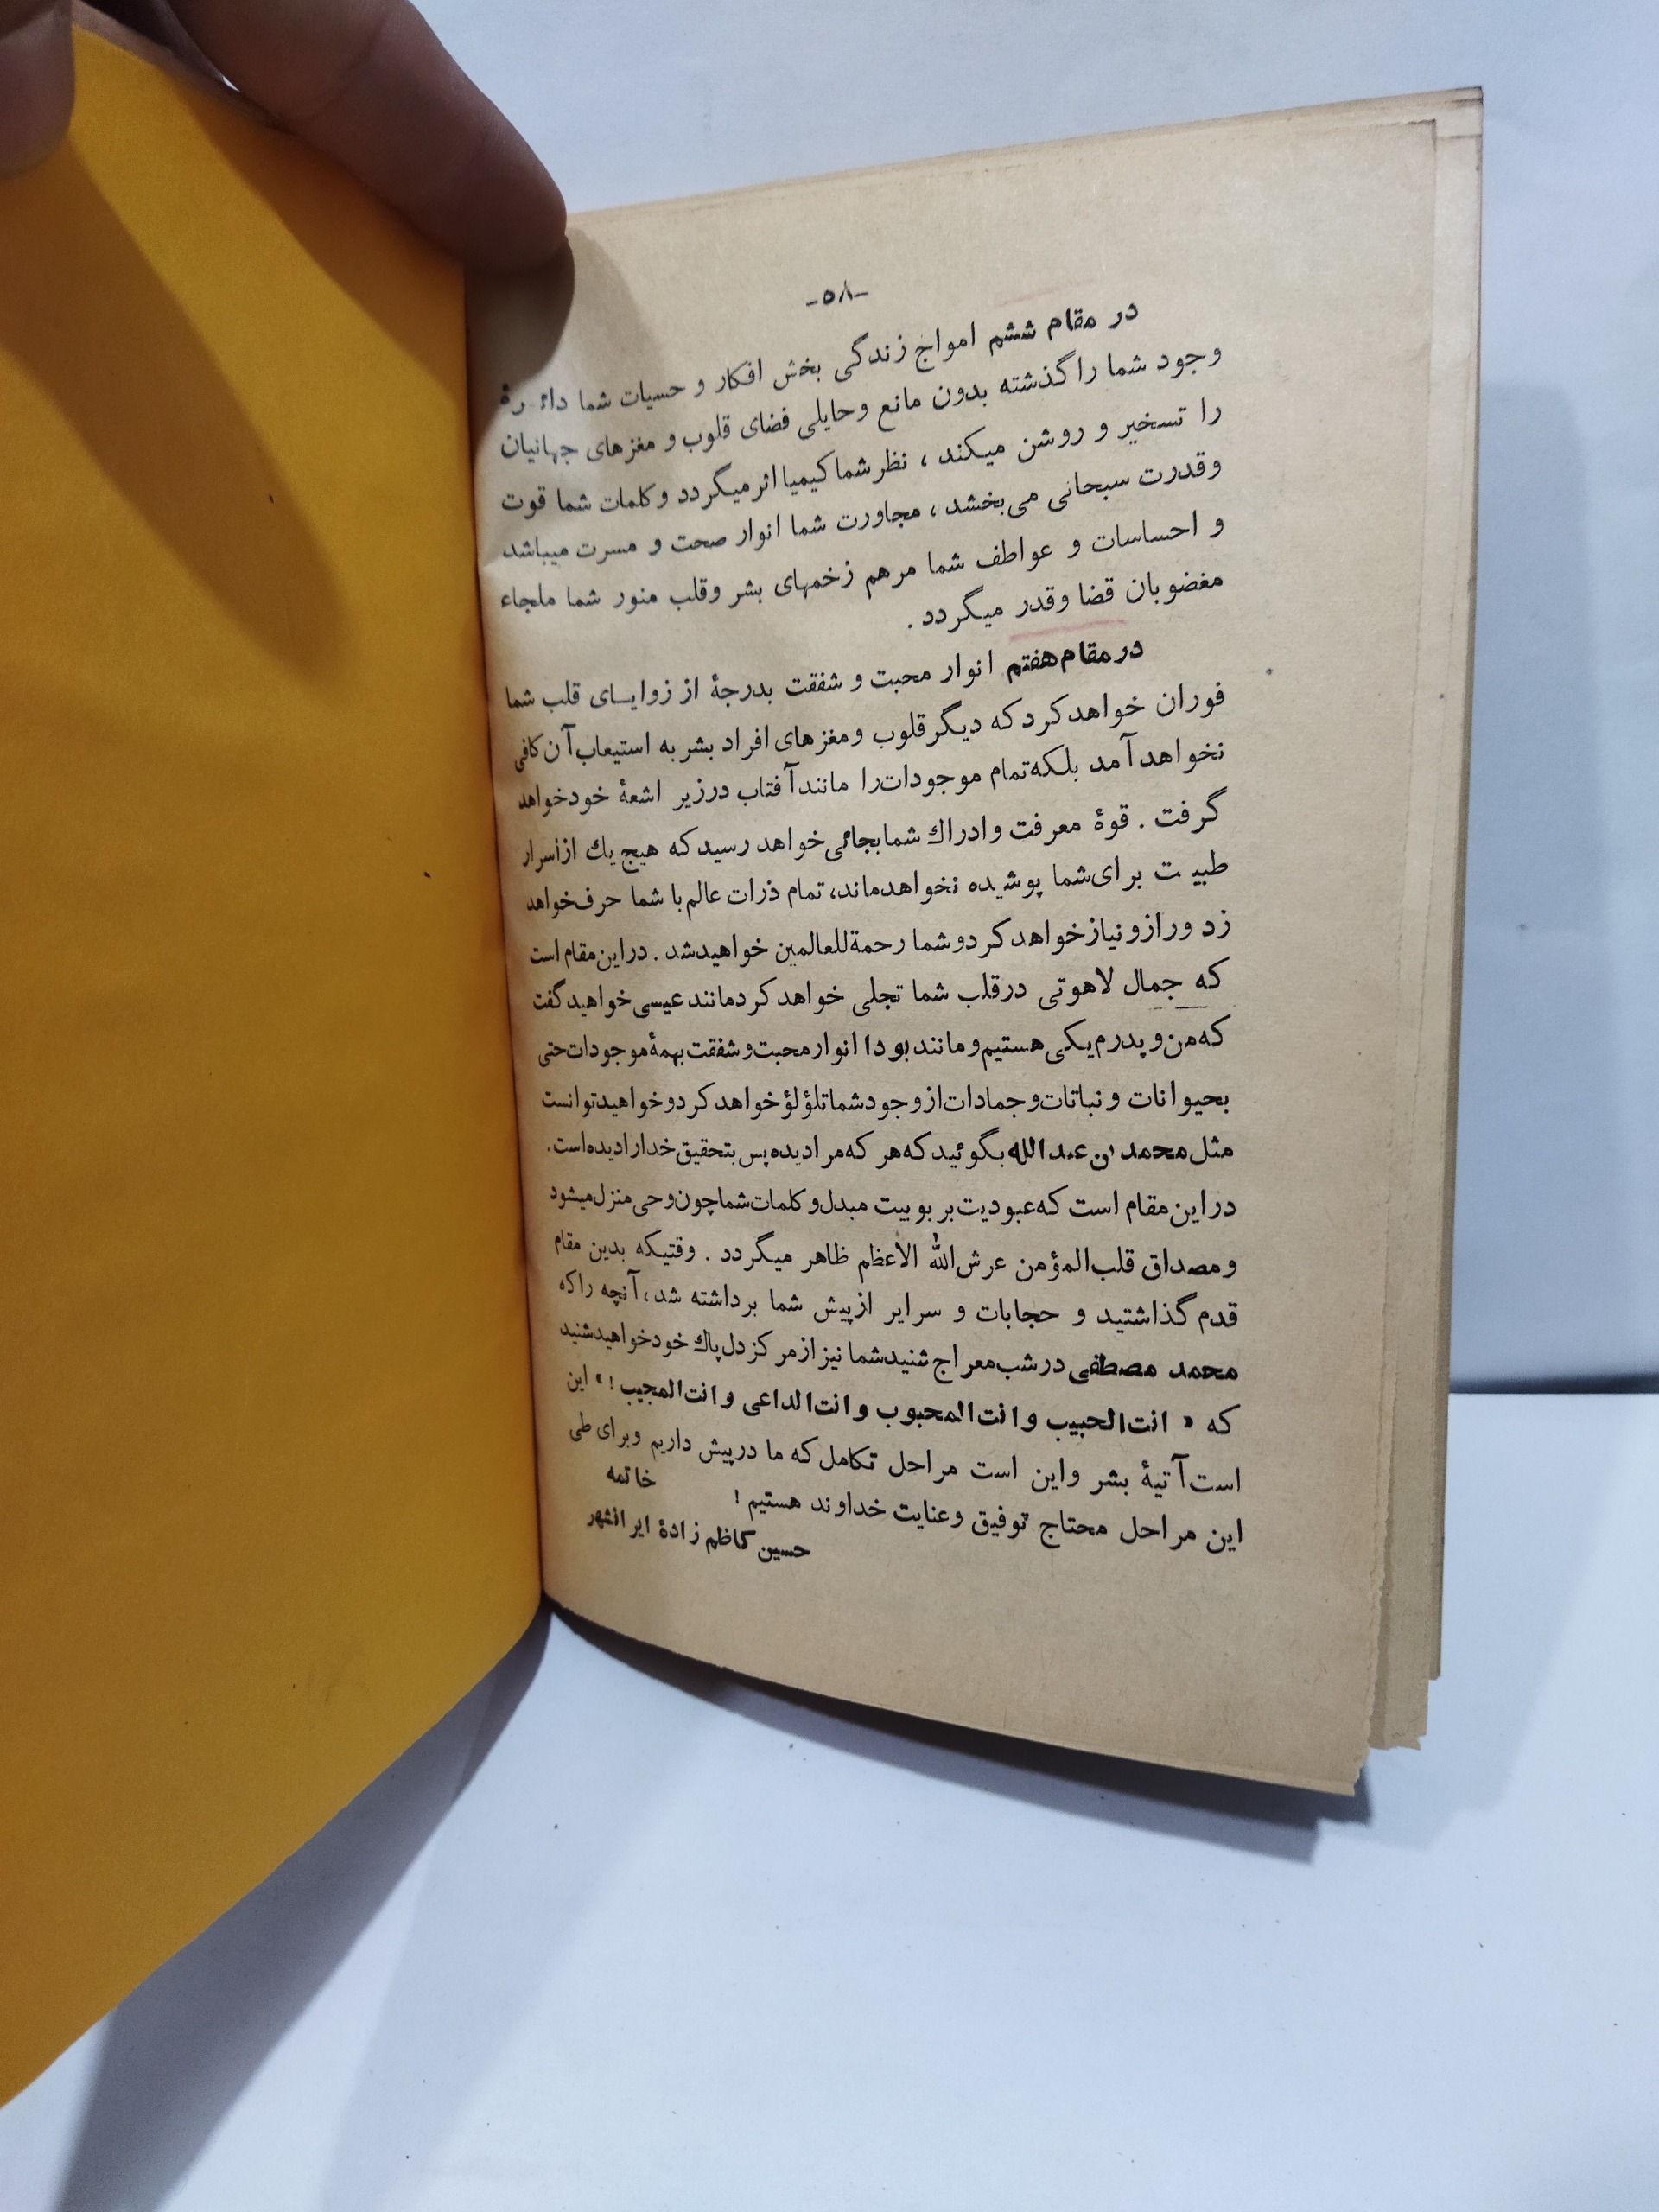 -۵۸-
در مقام ششم امواج زندگی بخش افکار و حسیات شما دائرهٔ
وجود شما را گذشته بدون مانع و حایلی فضای قلوب و مغزهای جهانیان
را تسخیر و روشن میکند ، نظر شما کیمیا اثر میگردد و کلمات شما قوت
و قدرت سبحانی می‌بخشد ، مجاورت شما انوار صحت و مسرت میباشد
و احساسات و عواطف شما مرهم زخمهای بشر و قلب منور شما ملجاء
مغضوبان قضا و قدر میگردد .
در مقام هفتم انوار محبت و شفقت بدرجهٔ از زوایای قلب شما
فوران خواهد کرد که دیگر قلوب و مغزهای افراد بشر به استیعاب آن کافی
نخواهد آمد بلکه تمام موجودات را مانند آفتاب در زیر اشعهٔ خود خواهد
گرفت . قوهٔ معرفت و ادراك شما بجائی خواهد رسید که هیچ یك از اسرار
طبیت برای شما پوشیده نخواهد ماند، تمام ذرات عالم با شما حرف خواهد
زد و راز و نیاز خواهد کرد و شما رحمة للعالمین خواهید شد . در این مقام است
که جمال لاهوتی در قلب شما تجلی خواهد کرد مانند عیسی خواهید گفت
که من و پدرم یکی هستیم و مانند بودا انوار محبت و شفقت بهمهٔ موجودات حتی
بحیوانات و نباتات و جمادات از وجود شما تلؤلؤ خواهد کرد و خواهید توانست
مثل محمد بن عبدالله بگوئید که هر که مرا دیده پس بتحقیق خدا را دیده است.
در این مقام است که عبودیت بربوبیت مبدل و کلمات شما چون وحی منزل میشود
و مصداق قلب المؤمن عرش الله الاعظم ظاهر میگردد . وقتیکه بدین مقام
قدم گذاشتید و حجابات و سرایر از پیش شما برداشته شد، آنچه را که
محمد مصطفی در شب معراج شنید شما نیز از مرکز دل پاك خود خواهید شنید
که « انت الحبیب و انت المحبوب و انت الداعی و انت المجیب ! » این
است آتیهٔ بشر و این است مراحل تکامل که ما در پیش داریم و برای طی
این مراحل محتاج توفیق و عنایت خداوند هستیم !
خاتمه
حسین کاظم زادهٔ ایرانشهر